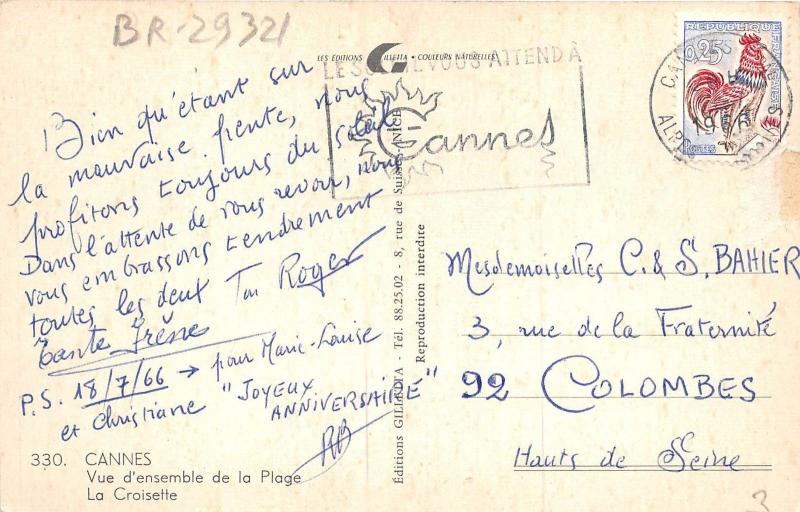 BR-29321
LES ÉDITIONS GILLETTA • COULEURS NATURELLES
Bien qu'étant sur
la mauvaise pente, nous
profitons toujours du soleil
Dans l'attente de vous revoir, nous
vous embrassons tendrement
toutes les deux Ton Roger
Tante Irène
P.S. 18/7/66 → pour Marie-Louise
et Christiane "JOYEUX
ANNIVERSAIRE"
RB
330. CANNES
Vue d'ensemble de la Plage
La Croisette
Editions GILLETTA - Tél. 88.25.02 - 8, rue de Suisse, NICE
Reproduction interdite
VOUS ATTEND À
Cannes
REPUBLIQUE FRANÇAISE
0,25
POSTES
Mesdemoiselles C. & S. BAHIER
3, rue de la Fraternité
92 COLOMBES
Hauts de Seine
3